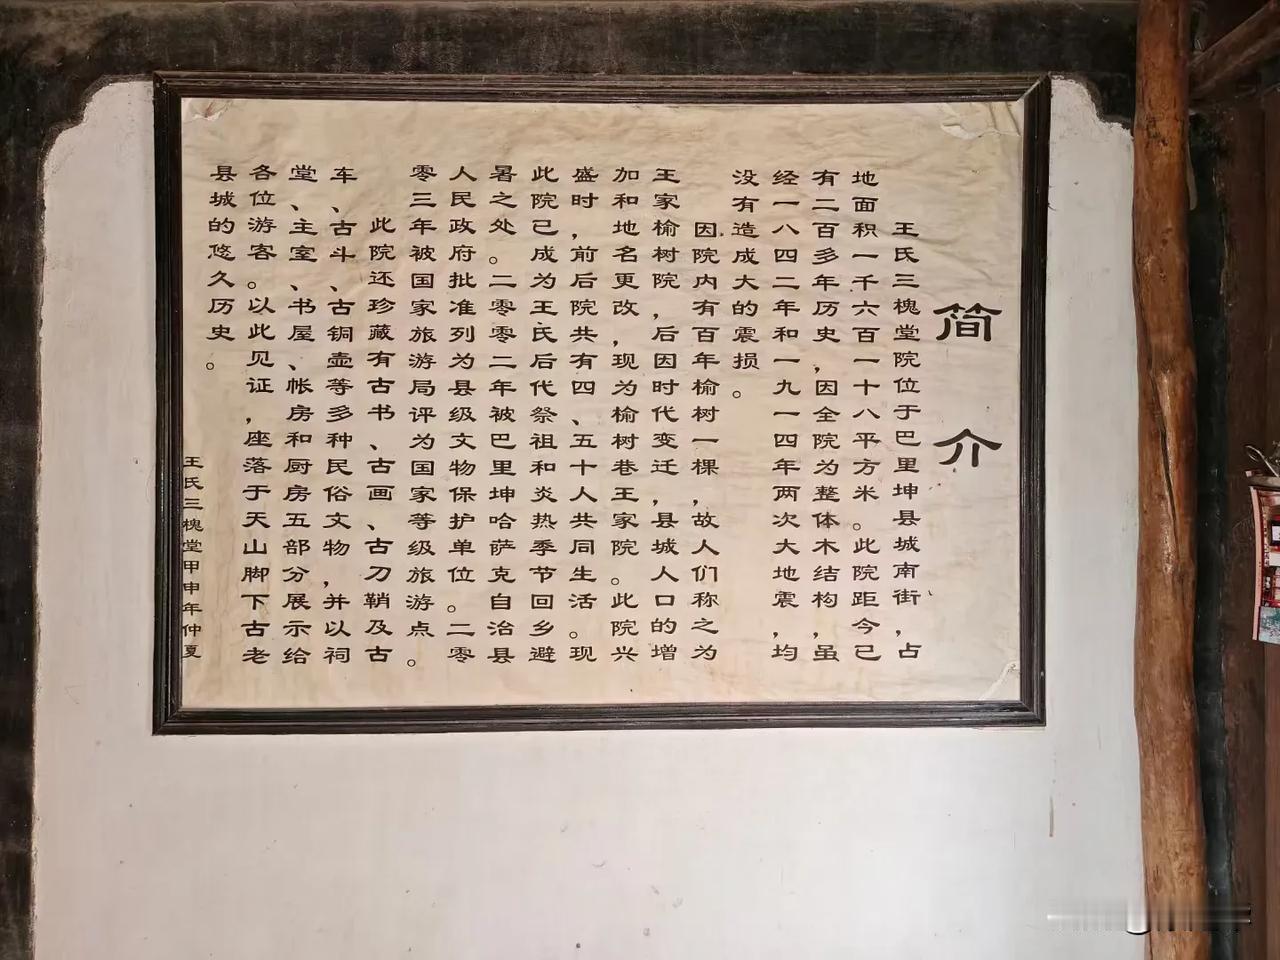 简介
王氏三槐堂院位于巴里坤县城南街，占
地面积一千六百一十八平方米。此院距今已
有二百多年历史，因全院为整体木结构，虽
经一八四二年和一九一四年两次大地震，均
没有造成大的震损。
因院内有百年榆树一棵，故人们称之为
王家榆树院，后因时代变迁，县城人口的增
加和地名更改，现为榆树巷王家院。此院兴
盛时，前后院共有四、五十人共同生活。现
此院已成为王氏后代祭祖和炎热季节回乡避
暑之处。二零零二年被巴里坤哈萨克自治县
人民政府批准列为县级文物保护单位。二零
零三年被国家旅游局评为国家等级旅游点。
此院还珍藏有古书、古画、古刀鞘及古
车、古斗、古铜壶等多种民俗文物，并以祠
堂、主室、书屋、帐房和厨房五部分展示给
各位游客。以此见证，座落于天山脚下古老
县城的悠久历史。
王氏三槐堂甲申年仲夏